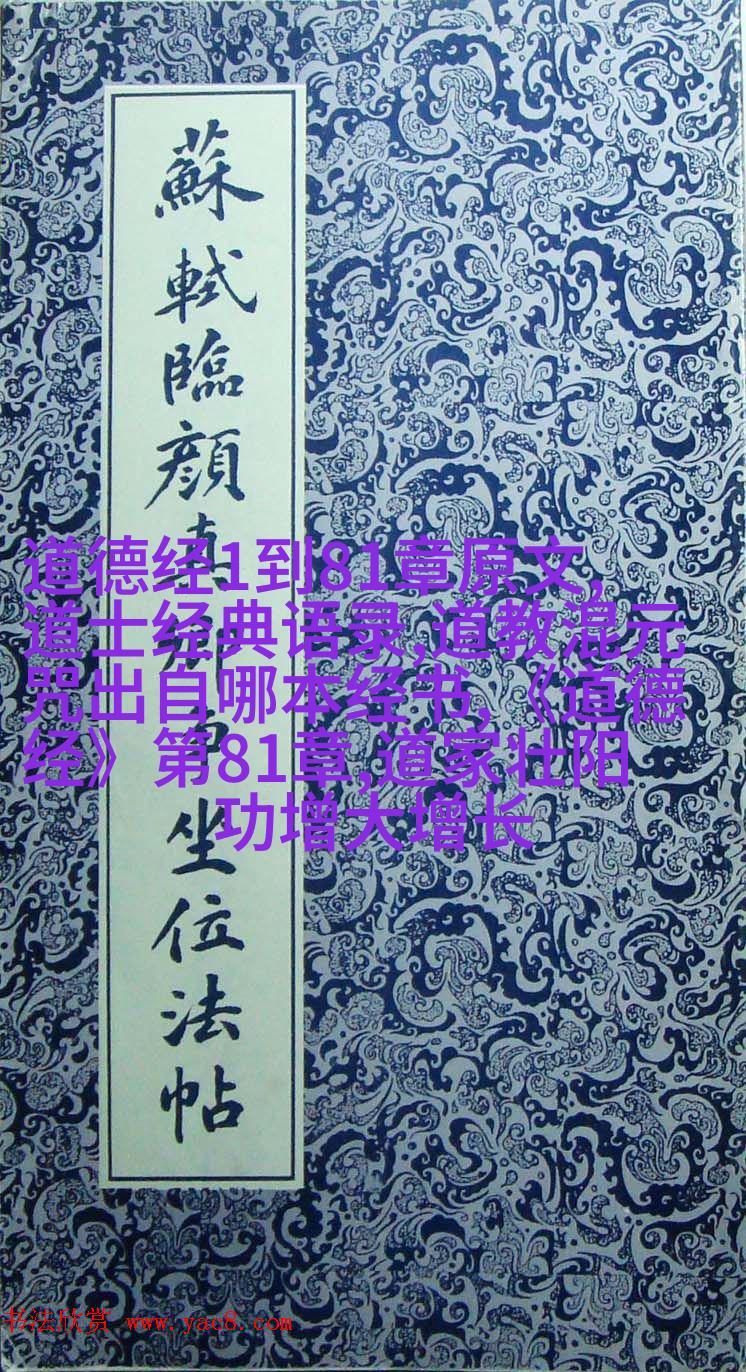 蘇軾臨顔真卿争坐位法帖
道德经1到81章原文,
道士经典语录,道教混元
咒出自哪本经书,《道德
经》第81章,道家壮阳
功增大增长
书法欣赏 www.yac8.com